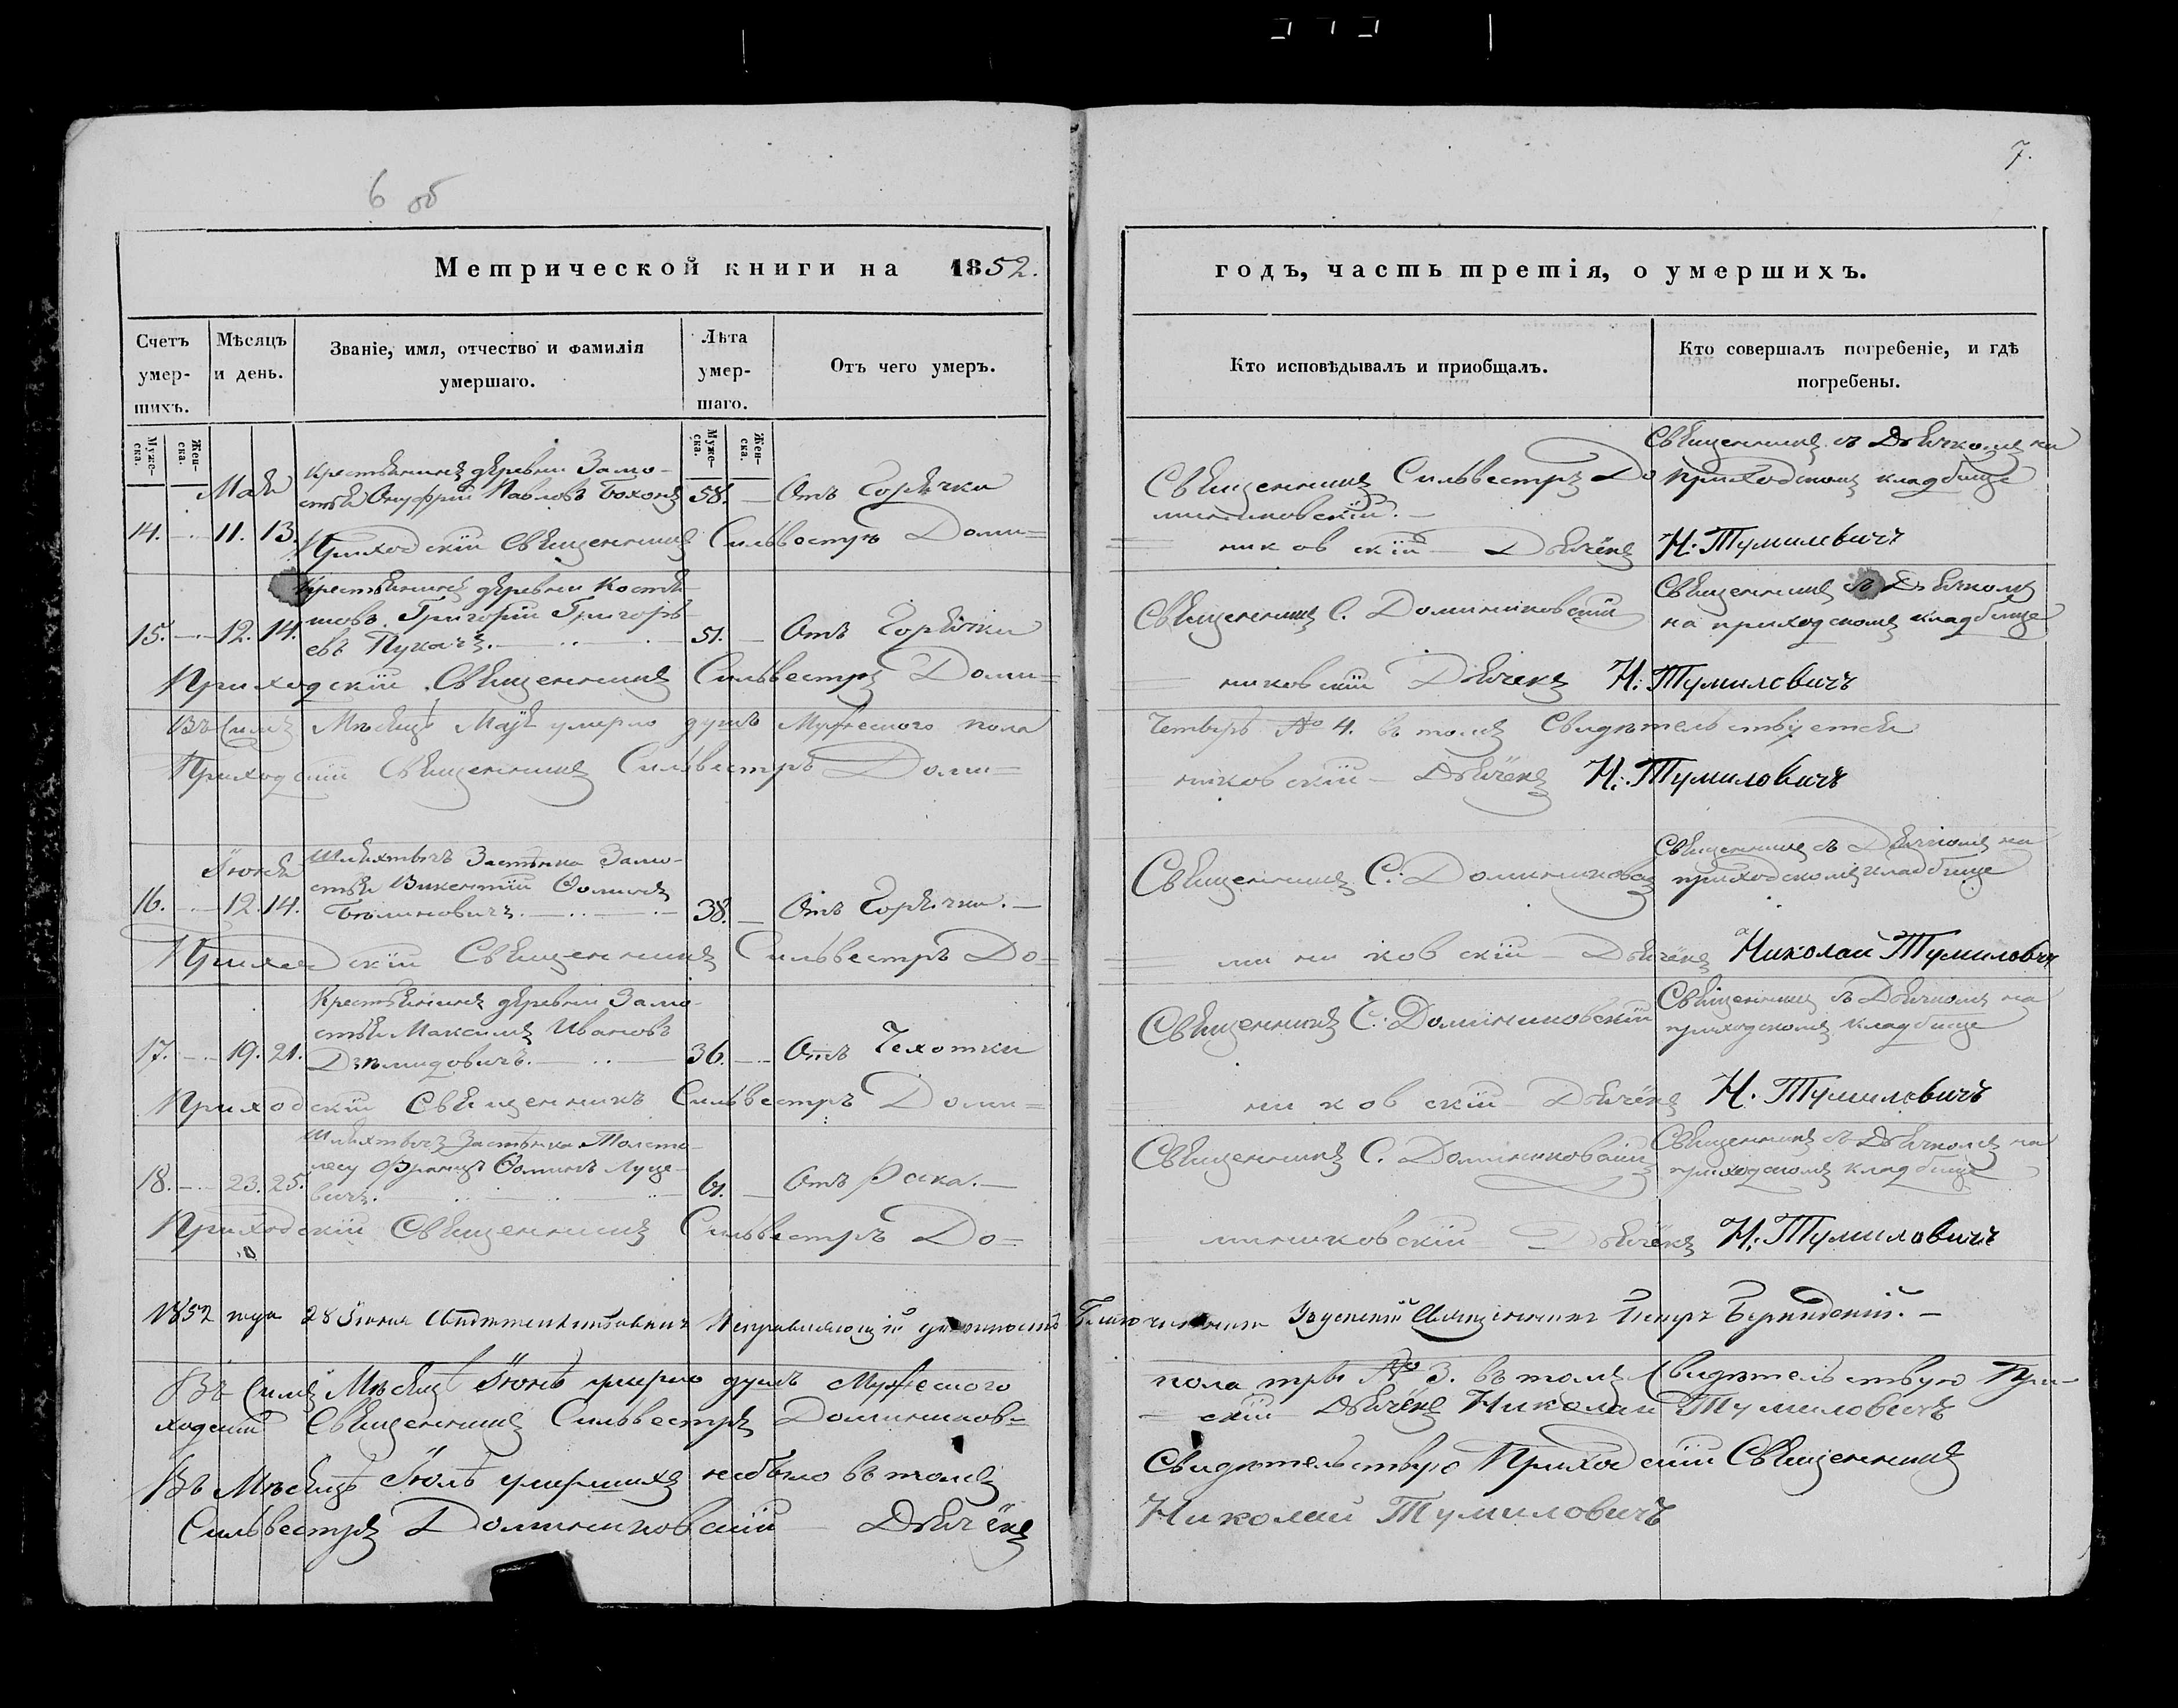 6 об
7.
Метрической книги на 1852.
годъ, часть третія, о умершихъ.
Счетъ умер-шихъ.
Мѣсяцъ и день.
Званіе, имя, отчество и фамилія умершаго.
Лѣта умер-шаго.
Отъ чего умеръ.
Кто исповѣдывалъ и приобщалъ.
Кто совершалъ погребеніе, и гдѣ погребены.
Муже-ска.
Жен-ска.
Муже-ска.
Жен-ска.
Мая
Крестьянинъ деревни Замо-
стья Онуфрій Павловъ Бохонъ 58. — Отъ Горячки
14. — 11. 13.
Священникъ Сильвестръ До
миниковскій. —
Священникъ съ Дьячкомъ на
приходскомъ кладбище
Приходскій Священникъ Сильвестръ Доми=
никовскій — Дьячекъ Н: Тумиловичъ
Крестьянинъ деревни Костѣ-
шовъ Григорій Григорь
15. — 12. 14. евъ Пукачъ. — 51. — Отъ Горячки
Священникъ С. Доминиковскій
Священникъ съ Дьячкомъ
на приходскомъ кладбище
Приходскій Священникъ Сильвестръ Доми=
никовскій Дьячекъ Н: Тумиловичъ
Въ Семъ Мѣсяцѣ Маѣ умерло душъ Мужескаго пола
Четыре № 4. въ томъ Свидѣтельствуется
Приходскій Священникъ Сильвестръ Доми=
никовскій — Дьячекъ Н: Тумиловичъ
Іюня
Шляхтичъ Застѣнка Замо-
стья Викентій Ѳоминъ
16. — 12. 14. 38. — Отъ Горячки. —
Священникъ С: Доминиковск
Священникъ съ Дьячкомъ на
приходскомъ кладбище
Приходскій Священникъ Сильвестръ До=
миниковскій — Дьячекъ Николай Тумиловичъ
Крестьянинъ деревни Замо-
стья Максимъ Ивановъ
17. — 19. 21. Дземидовичъ. — 36. — Отъ Чехотки
Священникъ С: Доминиковскій
Священникъ съ Дьячкомъ на
приходскомъ кладбище
Приходскій Священникъ Сильвестръ Доми=
никовскій — Дьячекъ Н. Тумиловичъ
Шляхтичъ Застѣнка Толсто-
лесу Францъ Ѳоминъ Луце-
18. — 23. 25. вичъ. 61. — Отъ Рака. —
Священникъ С. Доминиковскій
Священникъ съ Дьячкомъ на
приходскомъ кладбище
Приходскій Священникъ Сильвестръ До=
миниковскій — Дьячекъ Н: Тумиловичъ
1852 года 28 Іюня Свидѣтельствовалъ Исправляющій должность Благочиннаго Священникъ Петръ
Въ Семъ Мѣсяцѣ Іюнѣ умерло душъ Мужескаго
пола три № 3. въ томъ Свидѣтельствую При-
ходскій Священникъ Сильвестръ Домиников=
скій — Дьячекъ Николай Тумиловичъ
Въ Мѣсяцѣ Іюлѣ умершихъ небыло въ томъ
Свидѣтельствую Приходскій Священникъ
Сильвестръ Доминиковскій — Дьячекъ
Николай Тумиловичъ